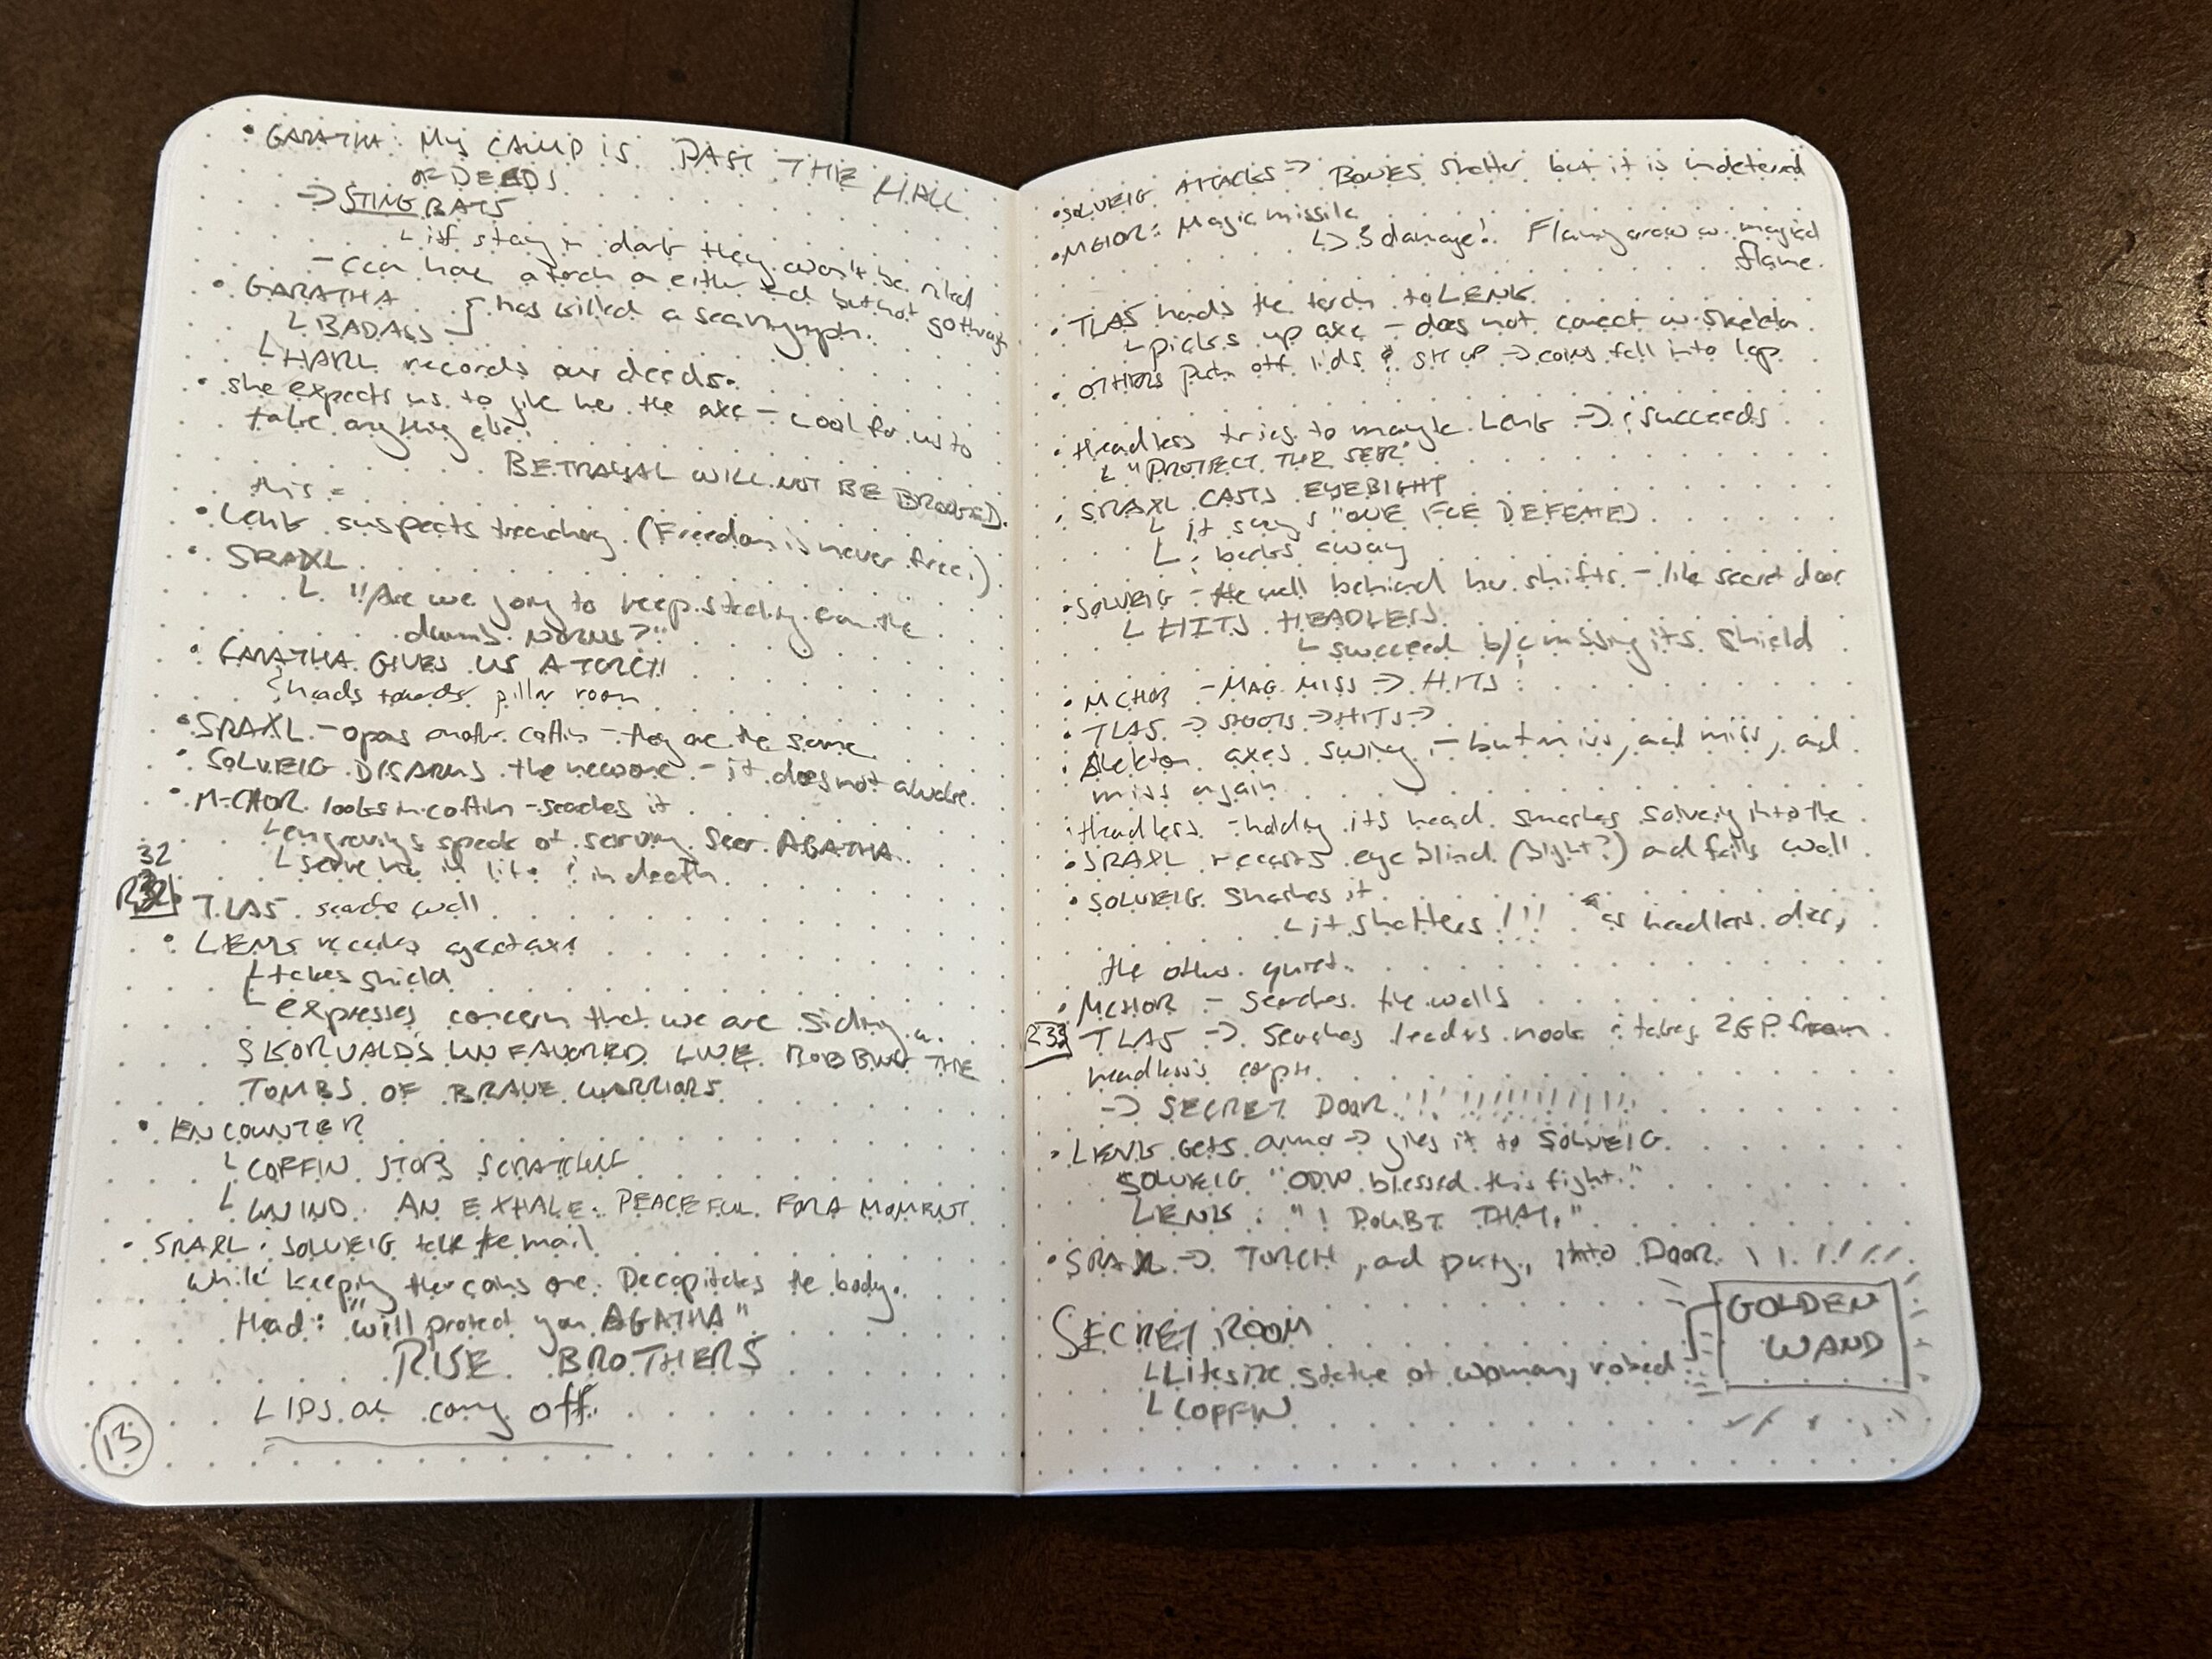 • GARATHA: My CAMP is PAST THE HALL
OF DEEDS
→ STING BATS
↳ if stay in dark they won't be riled
- can have a torch on either end but not go through
• GARATHA
↳ BADASS } has killed a
↳ HARL records our deeds.
• she expects us to give her the axe - cool for us to
take anything else.
BETRAYAL WILL NOT BE BROOKED.
this =
• Lenk suspects treachery. (Freedom is never free.)
• SRAXL
↳ "Are we going to keep stealing from the
dumb NORNS?"
• GARATHA GIVES US A TORCH
heads towards pillar room
• SRAXL - opens another coffin - they are the same
• SOLVEIG DISARMS the new one - it does not awake.
• M-CHOR looks in coffin - searches it
↳ engravings speak of serving Seer AGATHA
↳ serve her in life & in death.
32
R32
• TLAS search wall
• LENK receives greataxe
↳ takes shield
↳ expresses concern that we are siding w.
SKORVALD'S UNFAVORED LIKE ROBBING THE
TOMBS OF BRAVE WARRIORS
• ENCOUNTER
↳ COFFIN STOPS SCRATCHING
↳ WIND. AN EXHALE. PEACEFUL FOR A MOMENT
• SRAXL: SOLVEIG take the mail
while keeping the coins one. Decapitates the body.
Head: "will protect you AGATHA"
RISE BROTHERS
LIPS are coming off.
13
• SOLVEIG ATTACKS → BONES shatter but it is undeterred
• MCHOR: Magic missile
↳ 3 damage! Flaming arrow w. magical
flame.
• TLAS hands the torch to LENK
↳ picks up axe - does not connect w. skeleton.
• OTHERS push off lids & SIT UP → coins fall into lap
• Headless tries to mangle Lenk → succeeds
↳ "PROTECT THE SEER"
• SRAXL CASTS EYEBIGHT
↳ it says "ONE FOE DEFEATED
↳ backs away
• SOLVEIG - the wall behind her shifts - like secret door
↳ HITS HEADLESS
↳ succeed b/c missing its shield
• MCHOR - MAG. MISS → HITS!
• TLAS → SHOOTS → HITS →
• Skeleton axes swing - but miss, and miss, and
miss again
• Headless - holding its head smashes solveig into the
• SRAXL recasts eye blind (bight?) and fails wall
• SOLVEIG smashes it
↳ it shatters!!! as headless dies,
the others quiet.
• MCHOR - searches the walls
R33
TLAS → Searches leaders nook & takes 2GP from
headless's corpse.
→ SECRET DOOR!!!!!!!!!!!!!!
• LENK gets armor → gives it to SOLVEIG
SOLVEIG "ODIN blessed this fight."
LENK: "I DOUBT THAT."
• SRAXL → TORCH, and party, into DOOR !!!!!!
SECRET ROOM
↳ Lifesize statue of woman, robed
↳ COFFIN
GOLDEN
WAND